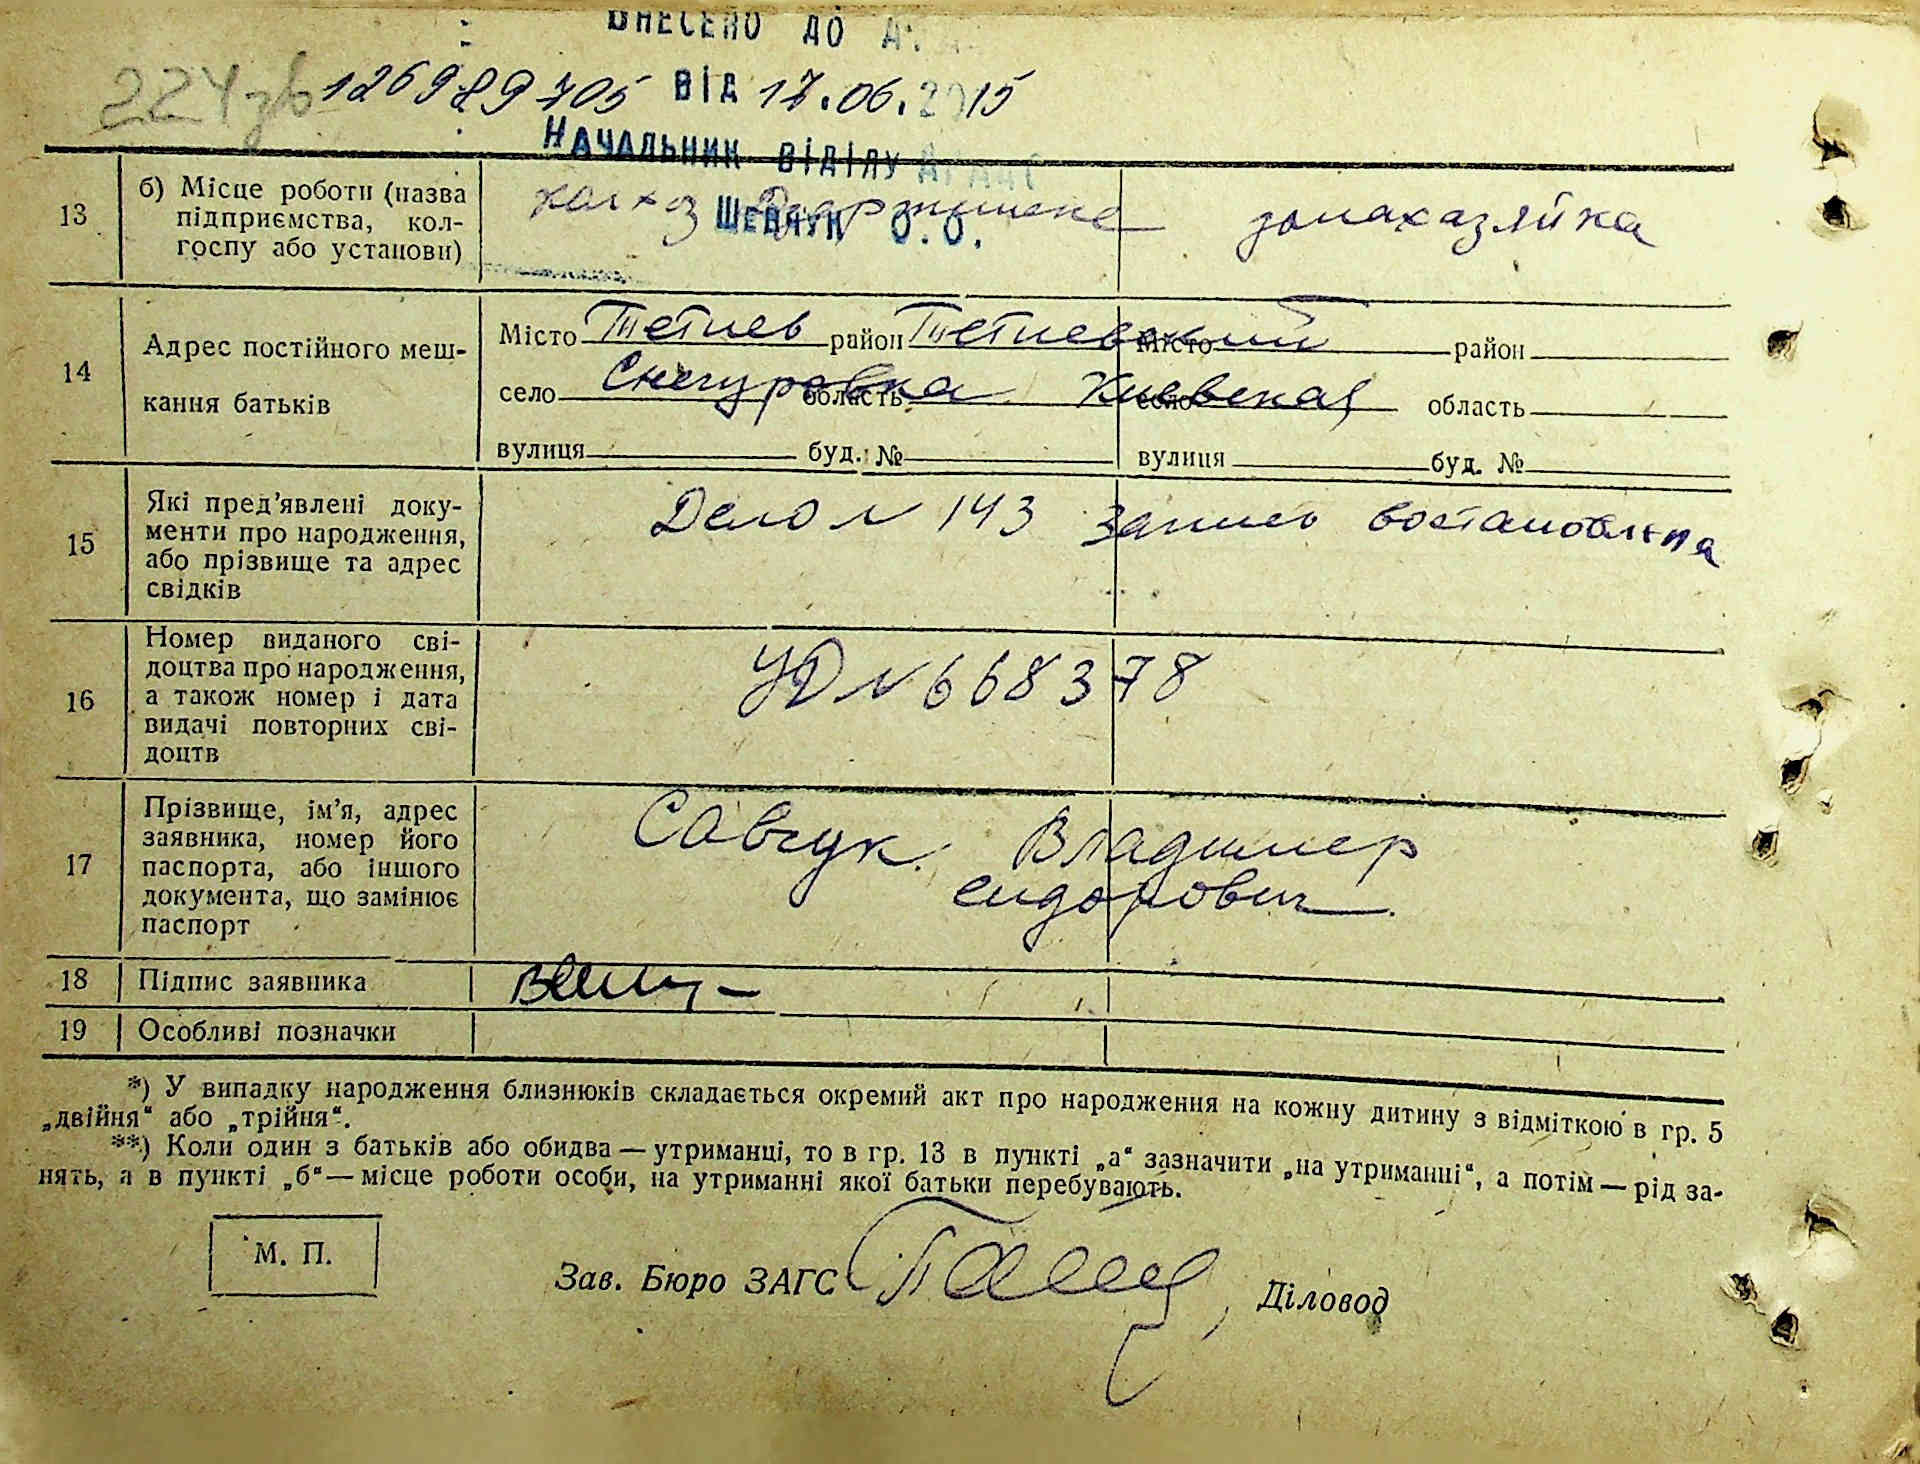 ВНЕСЕНО ДО
224зв 126989705 ВІД 17.06.2015
НАЧАЛЬНИК ВІДІЛУ
ШЕВЧУК О.О.
13 б) Місце роботи (назва підприємства, кол-
госпу або установи)
колхоз домахазяйка
14 Адрес постійного меш-
кання батьків
Місто Тетиев район Тетиевский Місто район
село Снегуровка область Киевская село область
вулиця буд. № вулиця буд. №
15 Які пред’явлені доку-
менти про народження,
або прізвище та адрес
свідків
Дело N 143 Запись востановлена
16 Номер виданого сві-
доцтва про народження,
а також номер і дата
видачі повторних сві-
доцтв
УД N 668378
17 Прізвище, ім’я, адрес
заявника, номер його
паспорта, або іншого
документа, що замінює
паспорт
Савчук Владимер
Сидорович
18 Підпис заявника
19 Особливі позначки
*) У випадку народження близнюків складається окремий акт про народження на кожну дитину з відміткою в гр. 5
„двійня“ або „трійня“.
**) Коли один з батьків або обидва — утриманці, то в гр. 13 в пункті „а“ зазначити „на утриманні“, а потім — рід за-
нять, а в пункті „б“ — місце роботи особи, на утриманні якої батьки перебувають.
М. П.
Зав. Бюро ЗАГС , Діловод